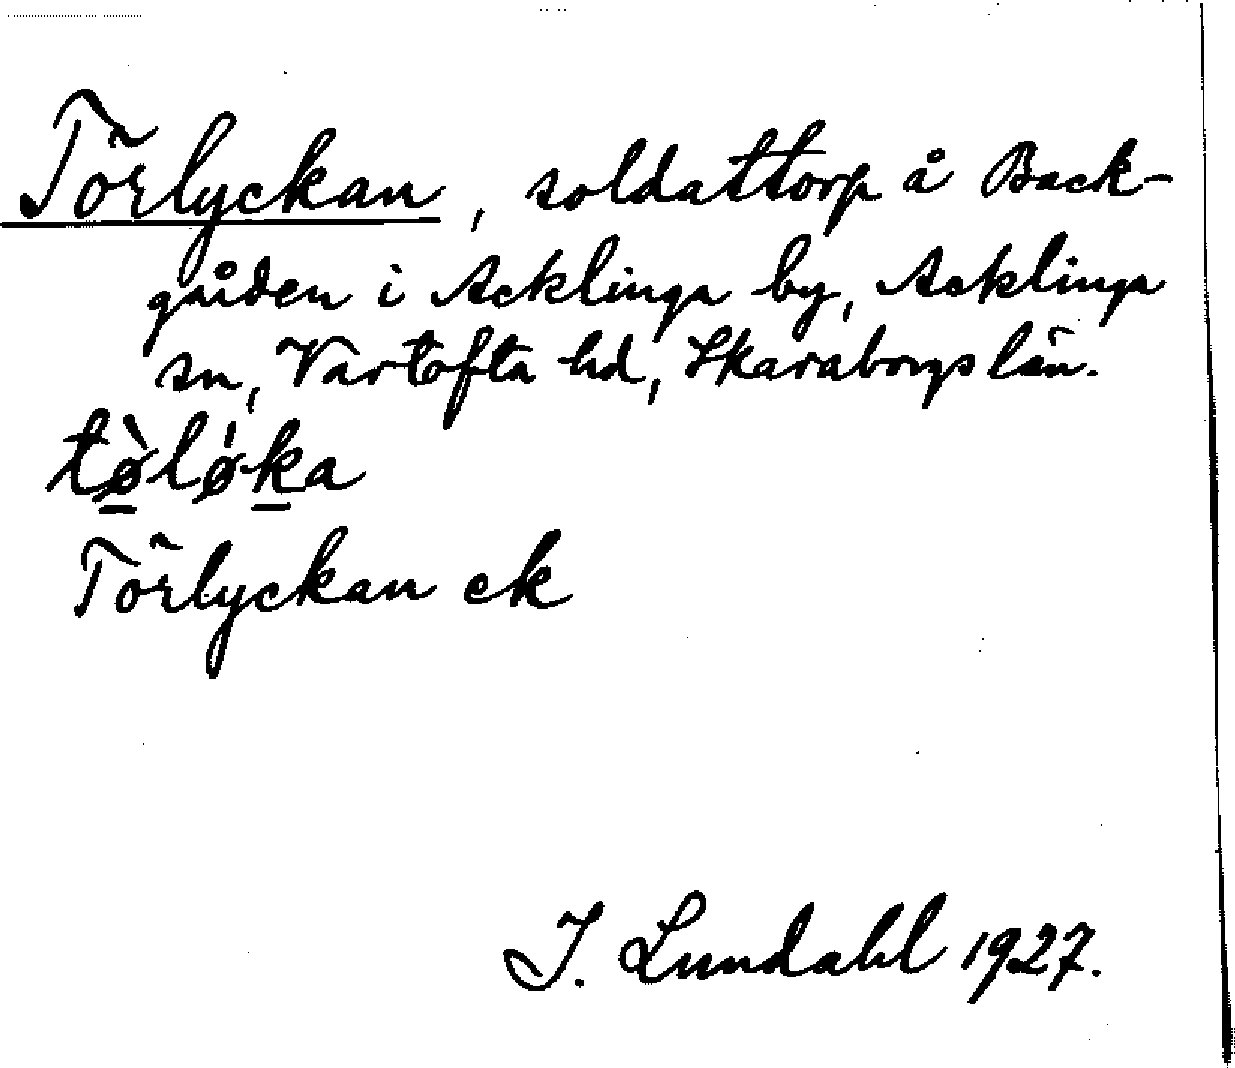 Törlyckan, soldattorp å Back-
gården i Acklinga by, Acklinga
sn, Vartofta hd, Skaraborgs län.
tø̀lǿka
Törlyckan ek
I. Lundahl 1927.